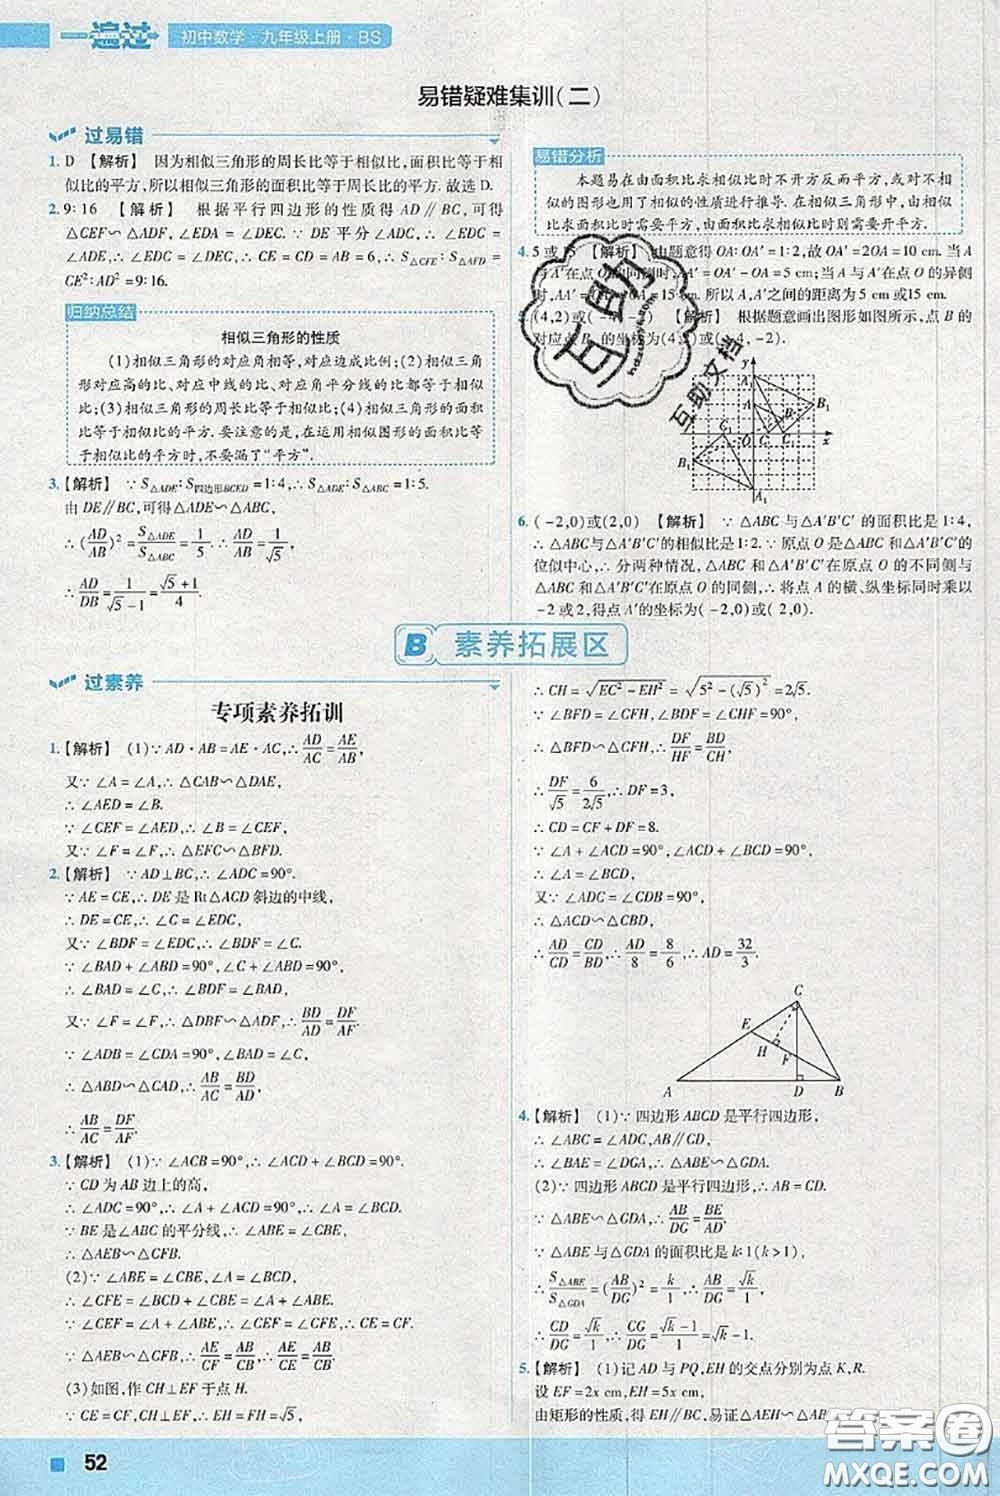 一遍过 初中数学·九年级上册·BS
易错疑难集训(二)
过易错
1. D 【解析】 因为相似三角形的周长比等于相似比,面积比等于相
似比的平方,所以相似三角形的面积比等于周长比的平方.故选D.
2. 9:16 【解析】 根据平行四边形的性质得 AD∥BC,可得
△CEF∽△ADF,∠EDA=∠DEC.∵DE平分∠ADC,∴∠EDC=
∠ADE,∴∠EDC=∠DEC,∴CE=CD=AB=6,∴S△CFE:S△AFD=
CE²:AD²=9:16.
归纳总结
相似三角形的性质
(1)相似三角形的对应角相等,对应边成比例;(2)相似三角
形对应高的比、对应中线的比、对应角平分线的比都等于相似
比;(3)相似三角形的周长比等于相似比;(4)相似三角形的面积
比等于相似比的平方.要注意的是,在运用相似图形的面积比等
于相似比的平方时,不要漏了“平方”.
3. 【解析】 ∵S△ADE:S四边形BCED=1:4,∴S△ADE:S△ABC=1:5.
由DE∥BC,可得△ADE∽△ABC,
∴(AD/AB)²=S△ADE/S△ABC=1/5.∴AD/AB=1/√5,
∴AD/DB=1/(√5-1)=(√5+1)/4.
易错分析
本题易在由面积比求相似比时不开方反而平方,或对不相
似的图形也应用了相似的性质进行推导.在相似形中,由相似
比求面积比时需要平方,由面积比求相似比时则应需要开平方.
4. 5或15 【解析】 由题意得OA:OA′=1:2,故OA′=2OA=10 cm.当A
与A′在点O的同侧时,AA′=OA′-OA=5 cm;当A与A′在点O的异侧
时,AA′=OA′+OA=15 cm.所以A,A′之间的距离为5 cm或15 cm.
5. (4,2)或(-4,-2) 【解析】 根据题意画出图形如图所示,点B的
对应点B₁的坐标为(4,2)或(-4,-2).
y
A₁
A
B B₁
C₁
O C C₁ x
B₁
A₁
6. (-2,0)或(2,0) 【解析】 ∵△ABC与△A′B′C′的面积比是1:4,
∴△ABC与△A′B′C′的相似比是1:2.∵原点O是△ABC与△A′B′C′的
位似中心,∴分两种情况,△ABC和△A′B′C′在原点O的不同侧与
△ABC和△A′B′C′在原点O的同侧,∴将点A的横、纵坐标同时乘以
-2或2,得点A′的坐标为(-2,0)或(2,0).
B 素养拓展区
过素养
专项素养拓训
1. 【解析】 (1)∵AD·AB=AE·AC,∴AD/AC=AE/AB,
又∵∠A=∠A,∴△CAB∽△DAE,
∴∠AED=∠B.
∵∠CEF=∠AED,∴∠B=∠CEF,
又∵∠F=∠F,∴△EFC∽△BFD.
2. 【解析】 ∵AD⊥BC,∴∠ADC=90°.
∵AE=CE,∴DE是Rt△ACD斜边的中线,
∴DE=CE,∴∠C=∠EDC,
又∵∠BDF=∠EDC,∴∠BDF=∠C.
∵∠BAD+∠ABD=90°,∠B+∠C=90°,
∴∠BAD=∠C,∴∠BDF=∠BAD,
又∵∠F=∠F,∴△DBF∽△ADF,∴BD/AD=DF/AF.
∵∠ADB=∠CDA=90°,∠BAD=∠C,
∴△ABD∽△CAD,∴AB/AC=BD/AD,
∴AB/AC=DF/AF.
3. 【解析】 (1)∵∠ACB=90°,∴∠ACD+∠BCD=90°.
∵CD为AB边上的高,
∴∠ADC=90°,∴∠A+∠ACD=90°,∴∠A=∠BCD.
∵BE是∠ABC的平分线,∴∠ABE=∠CBE,
∴△AEB∽△CFB.
(2)∵∠ABE=∠CBE,∠A=∠BCD,
∴∠CFE=∠BCD+∠CBE=∠A+∠ABE.
∵∠CEF=∠A+∠ABE,∴∠CEF=∠CFE,∴CE=CF.
∵△AEB∽△CFB,∴AE/CF=AB/CB,∴AE/CE=AB/CB.
(3)如图,作CH⊥EF于点H.
∵CE=CF,CH⊥EF,∴EH=FH=√5,
∴CH=√(EC²-EH²)=√(5²-(√5)²)=2√5.
∵∠BFD=∠CFH,∠BDF=∠CHF=90°,
∴△BFD∽△CFH,∴DF/HF=BD/CH,
∴DF/√5=6/2√5,∴DF=3,
∴CD=CF+DF=8.
∵∠A+∠ACD=90°,∠ACD+∠BCD=90°,
∴∠A=∠BCD.
又∵∠ADC=∠CDB=90°,
∴△ACD∽△CBD,
∴AD/CD=CD/BD,∴AD/8=8/6,∴AD=32/3.
C
E
H F
A D B
4. 【解析】 (1)∵四边形ABCD是平行四边形,
∴∠ABC=∠ADC,AB∥CD,
∴∠BAE=∠DGA,∴△ABE∽△GDA.
(2)∵四边形ABCD是平行四边形,∴AB=CD.
∵△ABE∽△GDA,∴AB/DG=BE/AD.
∵△ABE与△GDA的面积比是k:1(k>1),
∴S△ABE/S△GDA=(AB/DG)²=k/1,∴AB/DG=√k/1,
∴CD/DG=√k/1,∴CG/DG=(√k-1)/1=√k-1.
5. 【解析】 (1)记AD与PQ,EH的交点分别为点K,R.
设EF=2x cm,EH=5x cm,
由矩形的性质,得EH∥BC,易证△AEH∽△AB
52
互助
互助文档
答案圈
MXQE.COM